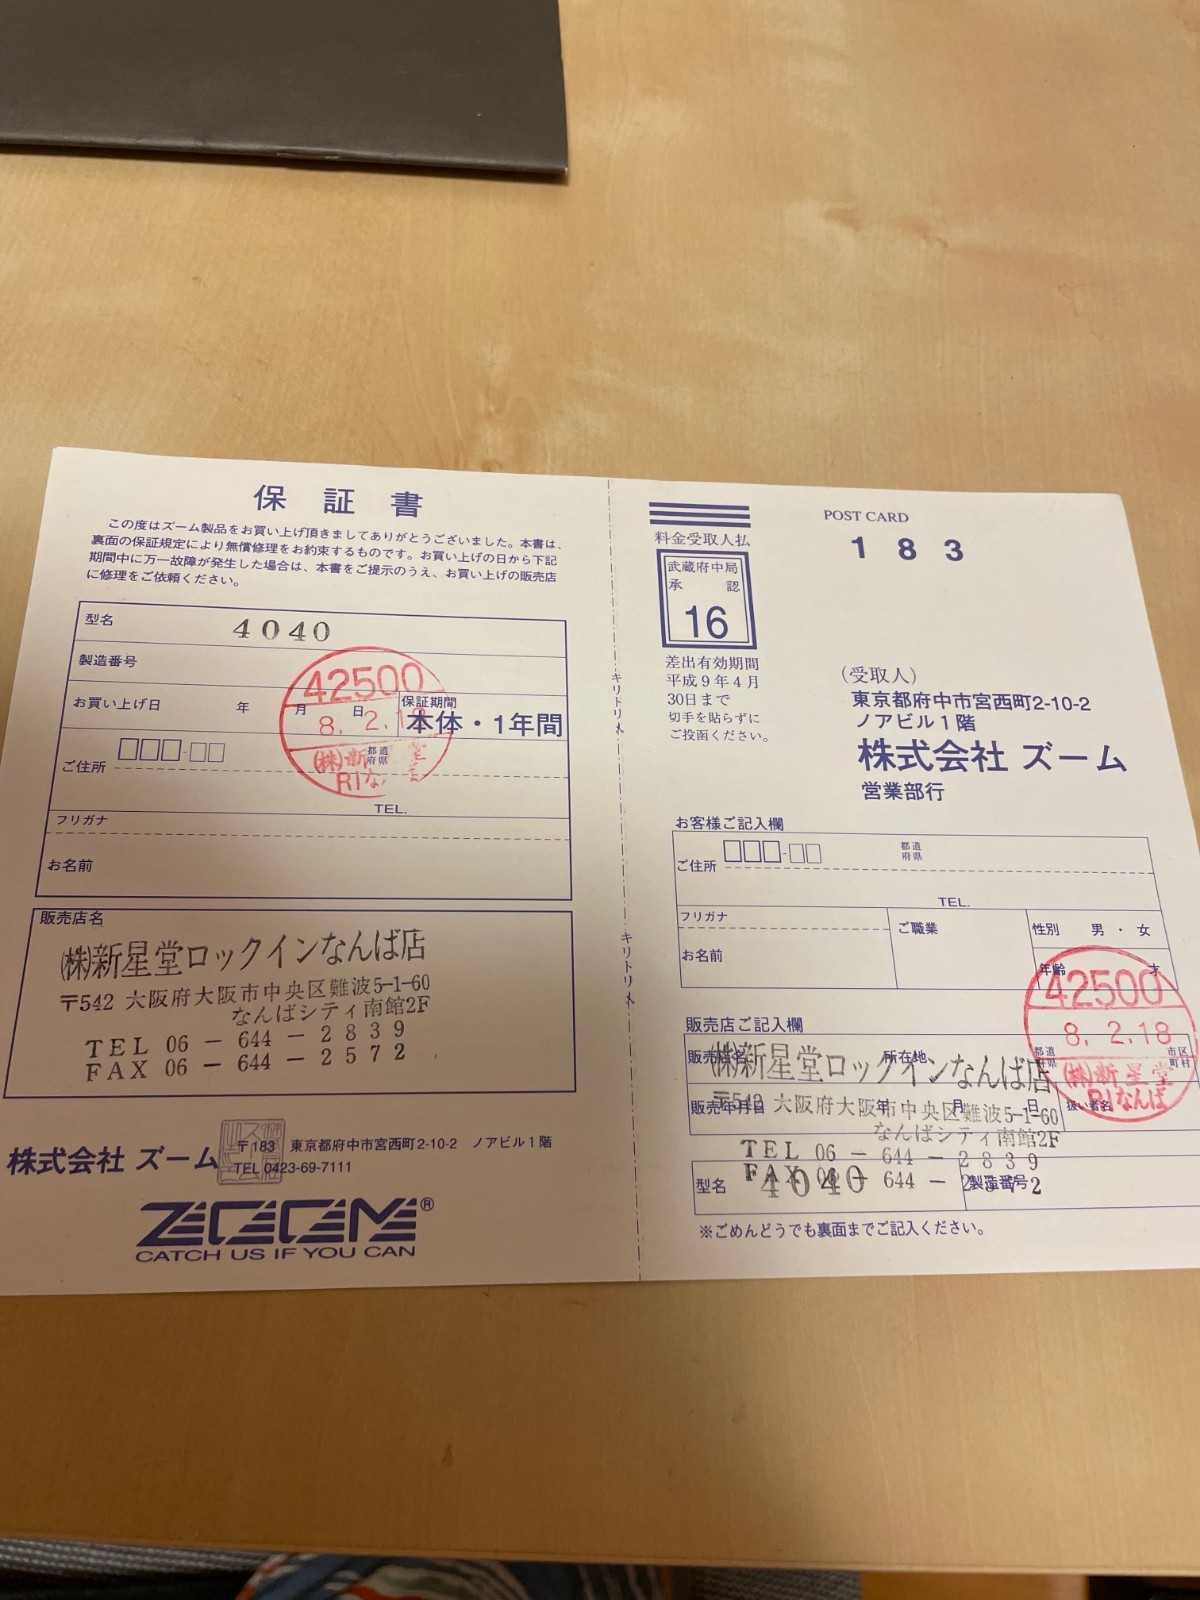 保証書
この度はズーム製品をお買い上げ頂きましてありがとうございました。本書は、
裏面の保証規定により無償修理をお約束するものです。お買い上げの日から下記
期間中に万一故障が発生した場合は、本書をご提示のうえ、お買い上げの販売店
に修理をご依頼ください。
型名 4040
製造番号
お買い上げ日 年 月 日
保証期間
本体・1年間
42500
8. 2. 18
(株)新星堂
RIなんば
ご住所 都道府県
TEL.
フリガナ
お名前
販売店名
㈱新星堂ロックインなんば店
〒542 大阪府大阪市中央区難波5-1-60
なんばシティ南館2F
TEL 06-644-2839
FAX 06-644-2572
株式会社 ズーム
〒183 東京都府中市宮西町2-10-2 ノアビル1階
TEL 0423-69-7111
ZOOM®
CATCH US IF YOU CAN
キリトリ
キリトリ
POST CARD
料金受取人払
武蔵府中局
承認
16
差出有効期間
平成9年4月
30日まで
切手を貼らずに
ご投函ください。
183
(受取人)
東京都府中市宮西町2-10-2
ノアビル1階
株式会社 ズーム
営業部行
お客様ご記入欄
ご住所 都道府県
TEL.
フリガナ
お名前
ご職業
性別 男・女
年齢 才
42500
8. 2. 18
(株)新星堂
RIなんば
販売店ご記入欄
販売店名 所在地 都道府県 市区町村
㈱新星堂ロックインなんば店
販売年月日 年 月 日 扱い者名
〒542 大阪府大阪市中央区難波5-1-60
なんばシティ南館2F
TEL 06-644-2839
FAX 06-644-2572
型名 4040 製造番号
※ごめんどうでも裏面までご記入ください。